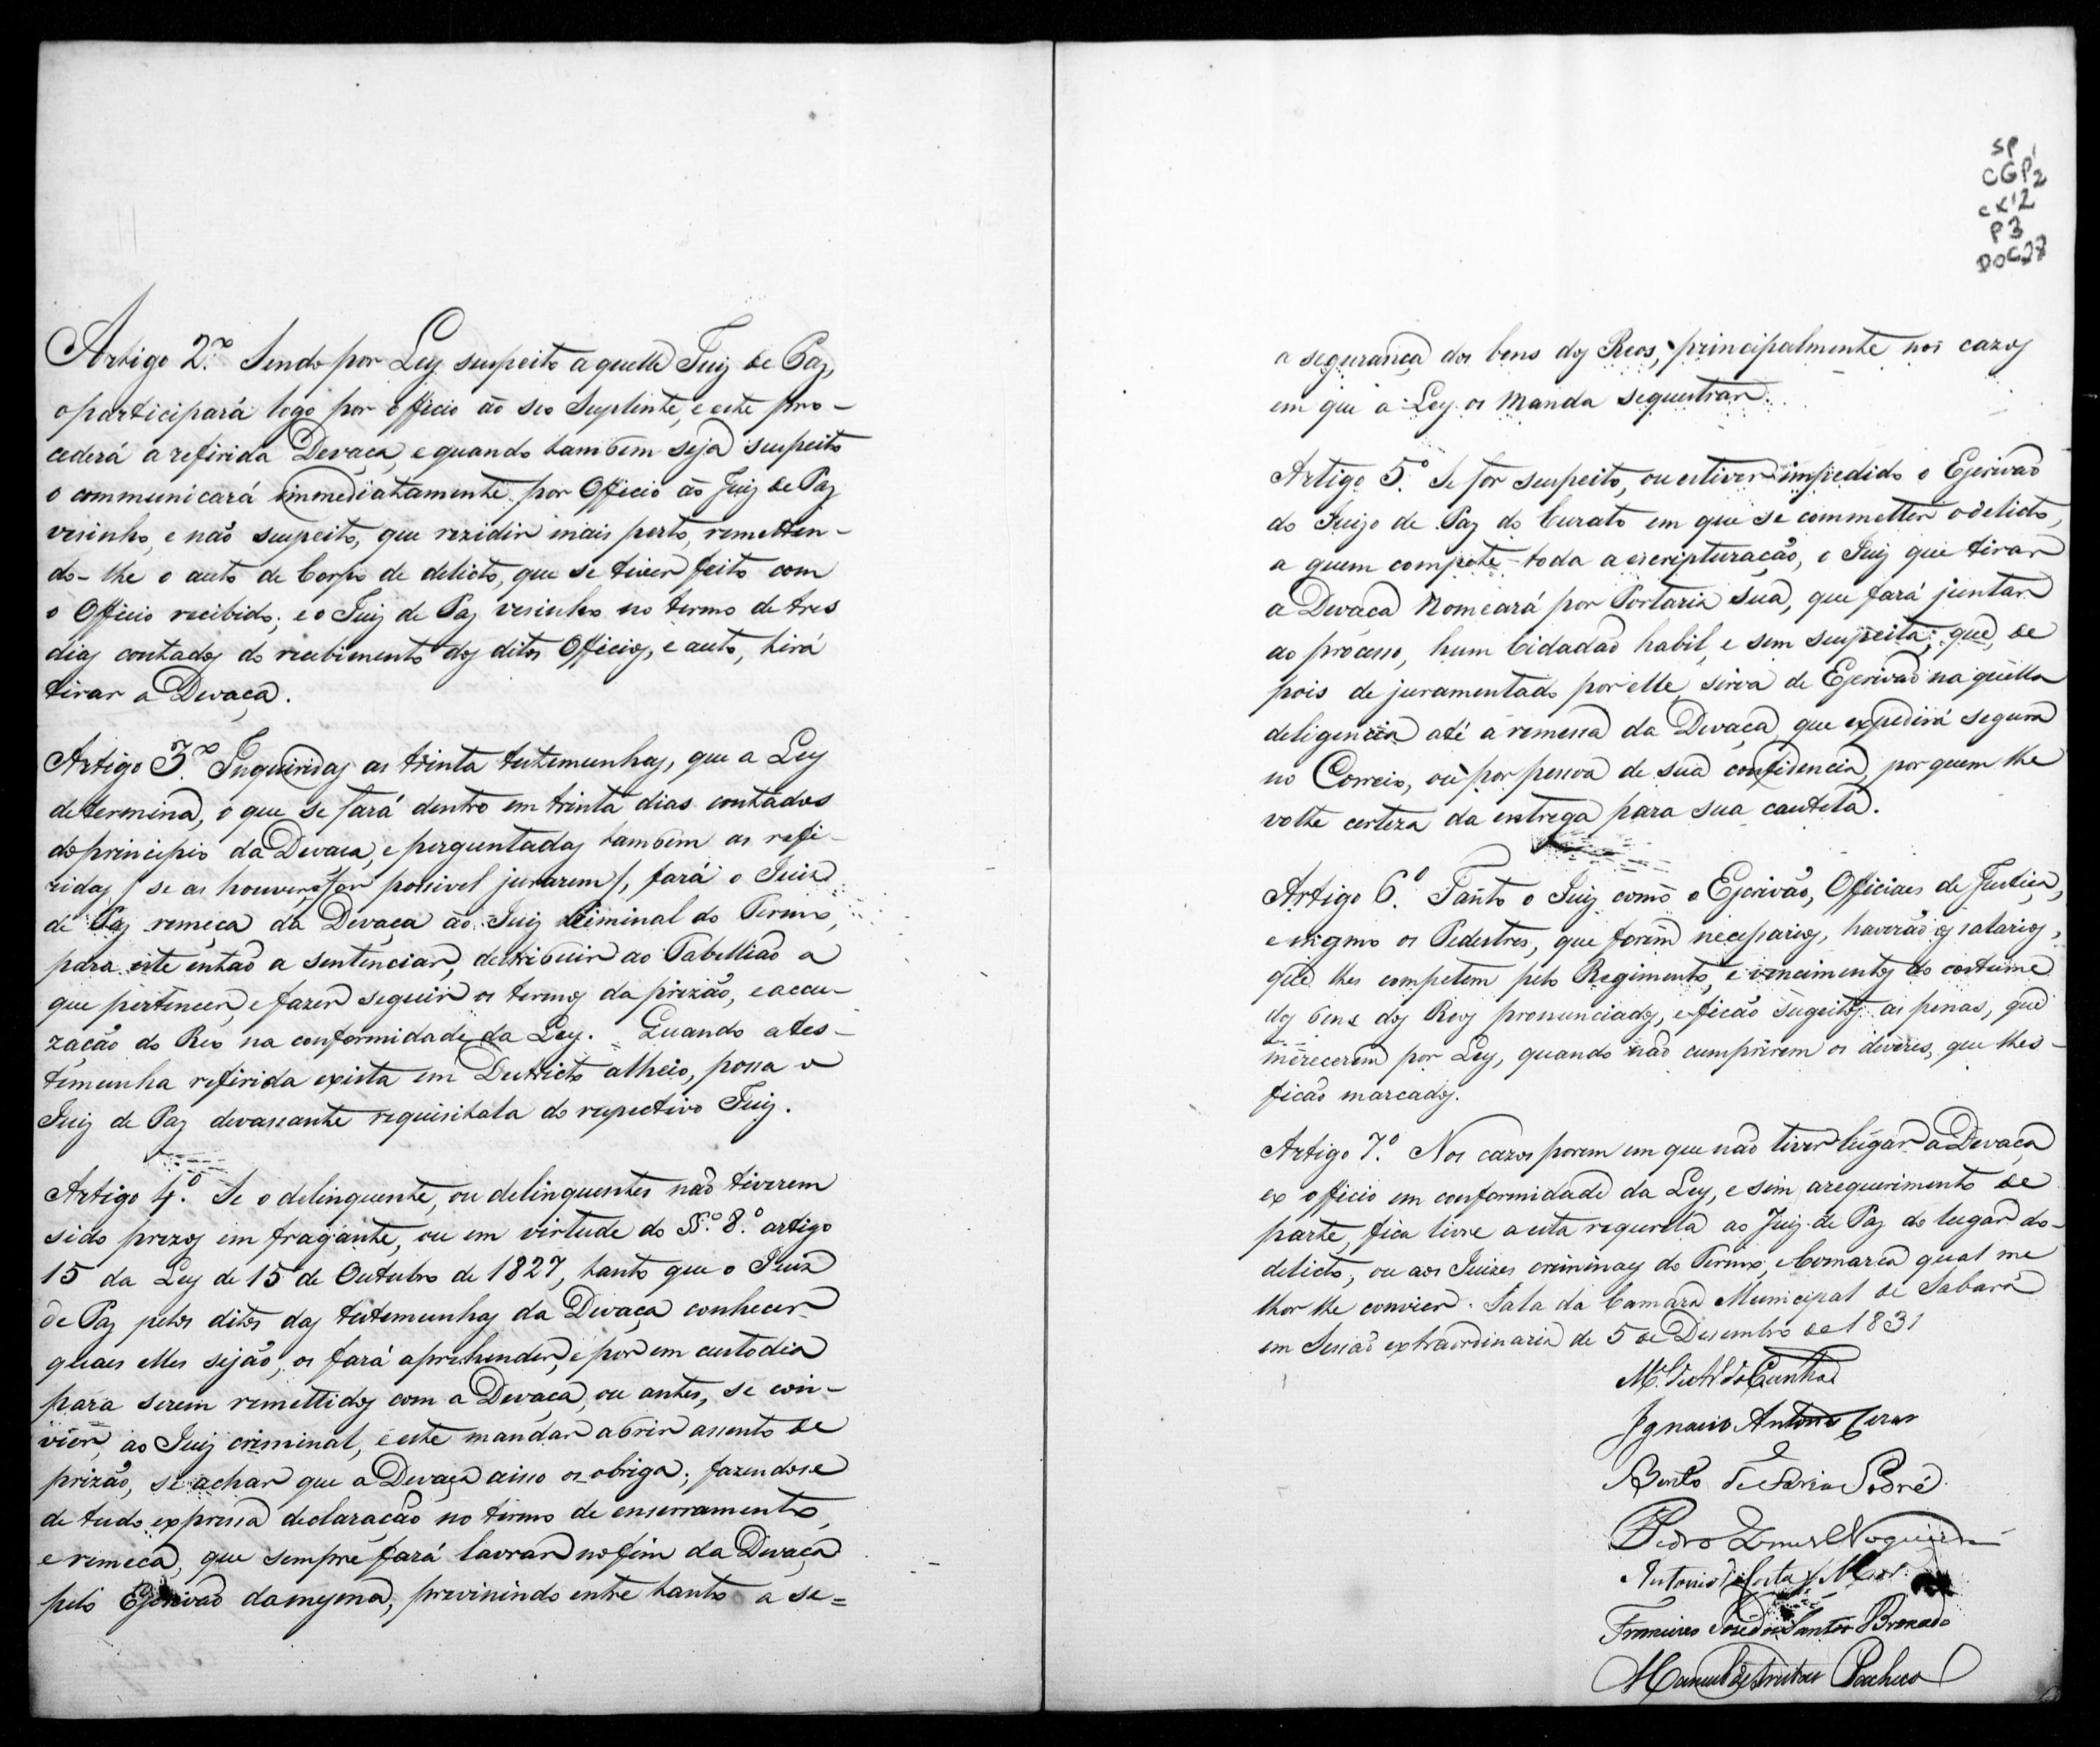 Artigo 2.º Sendo por Ley suspeito aquelle Juiz de Paz,
o participará logo por officio ao seo Suplente, e este pro-
cederá a referida Devaça, e quando tambem seja suspeito
o communicará immediatamente por Officio ao Juiz de Paz
vesinho, e não suspeito, que rezidir mais perto, remetten-
do-lhe o auto de Corpo de delicto, que se tiver feito com
o Officio recibido; e o Juiz de Paz vesinho no termo de tres
dias contados do recibimento dos ditos Officios, e auto, hirá
tirar a Devaça.
Artigo 3.º Inquiridas as trinta testemunhas, que a Ley
determina, o que se fará dentro em trinta dias contados
do principio da Devaça, e perguntadas tambem as refe-
ridas / se as houver, e for possivel jurarem /, fará o Juiz
de Paz remeça da Devaça ao Juiz Criminal do Termo,
para este então a sentenciar, destribuir ao Tabellião a
que pertencer, e fazer seguir os termos da prizão, e accu-
zação do Reo na conformidade da Ley. Quando a tes-
temunha referida exista em Destricto alheio, possa o
Juiz de Paz devassante requisitala do respectivo Juiz.
Artigo 4.º Se o delinquente, ou delinquentes não tiverem
sido prezos em fragante, ou em virtude do §.º 8.º artigo
15 da Ley de 15 de Outubro de 1827, tanto que o Juiz
de Paz pelos ditos das testemunhas da Devaça conhecer
quaes elles sejão, os fará aprehender, e por em custodia
para serem remettidos com a Devaça, ou antes, se con-
vier, ao Juiz criminal, e este mandar abrir assento de
prizão, se achar que a Devaça aisso os obriga; fazendose
de tudo expressa declaração no termo de enserramento,
e remeça, que sempre fará lavrar no fim da Devaça
pelo Escrivão damesma, previnindo entre tanto a se=
SP
CGP2
cx12
P3
DOC28
a segurança dos bens dos Reos, principalmente nos cazos
em que a Ley os manda sequestrar.
Artigo 5.º Se for suspeito, ou estiver impedido o Escrivão
do Juizo de Paz do Curato em que se commetter o delicto,
a quem compete toda a escripturação, o Juiz que tirar
a Devaça nomeará por Portaria sua, que fará juntar
ao processo, hum Cidadão habil, e sem suspeita; que, de
pois de juramentado por elle, sirva de Escrivão naquella
deligencia até a remessa da Devaça, que expedirá segura
no Correio, ou por pessoa de sua confidencia, por quem lhe
volte certeza da entrega para sua cautela.
Artigo 6.º Tanto o Juiz como o Escrivão, Officiaes de Justiça,
e mesmo os Pedestres, que forem necessarios, haverão os salarios,
que lhes competem pelo Regimento, e vencimentos do costume
dos bens dos Reos pronunciados, e ficão sugeitos as penas, que
merecerem por Ley, quando não cumprirem os deveres, que lhes
ficão marcados.
Artigo 7.º Nos cazos porem em que não tiver lugar a Devaça
ex officio em conformidade da Ley, e sim a requerimento de
parte, fica livre a esta requerela ao Juiz de Paz do lugar do
delicto, ou aos Juizes criminaes do Termo, e Comarca qual me
lhor lhe convier. Sala da Camara Municipal de Sabará
em Sessão extraordinaria de 5 de Desembro de 1831
Cunha
Ignacio Antonio Cezar
Bento de Faria Sodré
Pedro Gomes Nogueira
Antonio da Costa
Francisco José dos Santos Brochado
Manuel de Freitas Pacheco